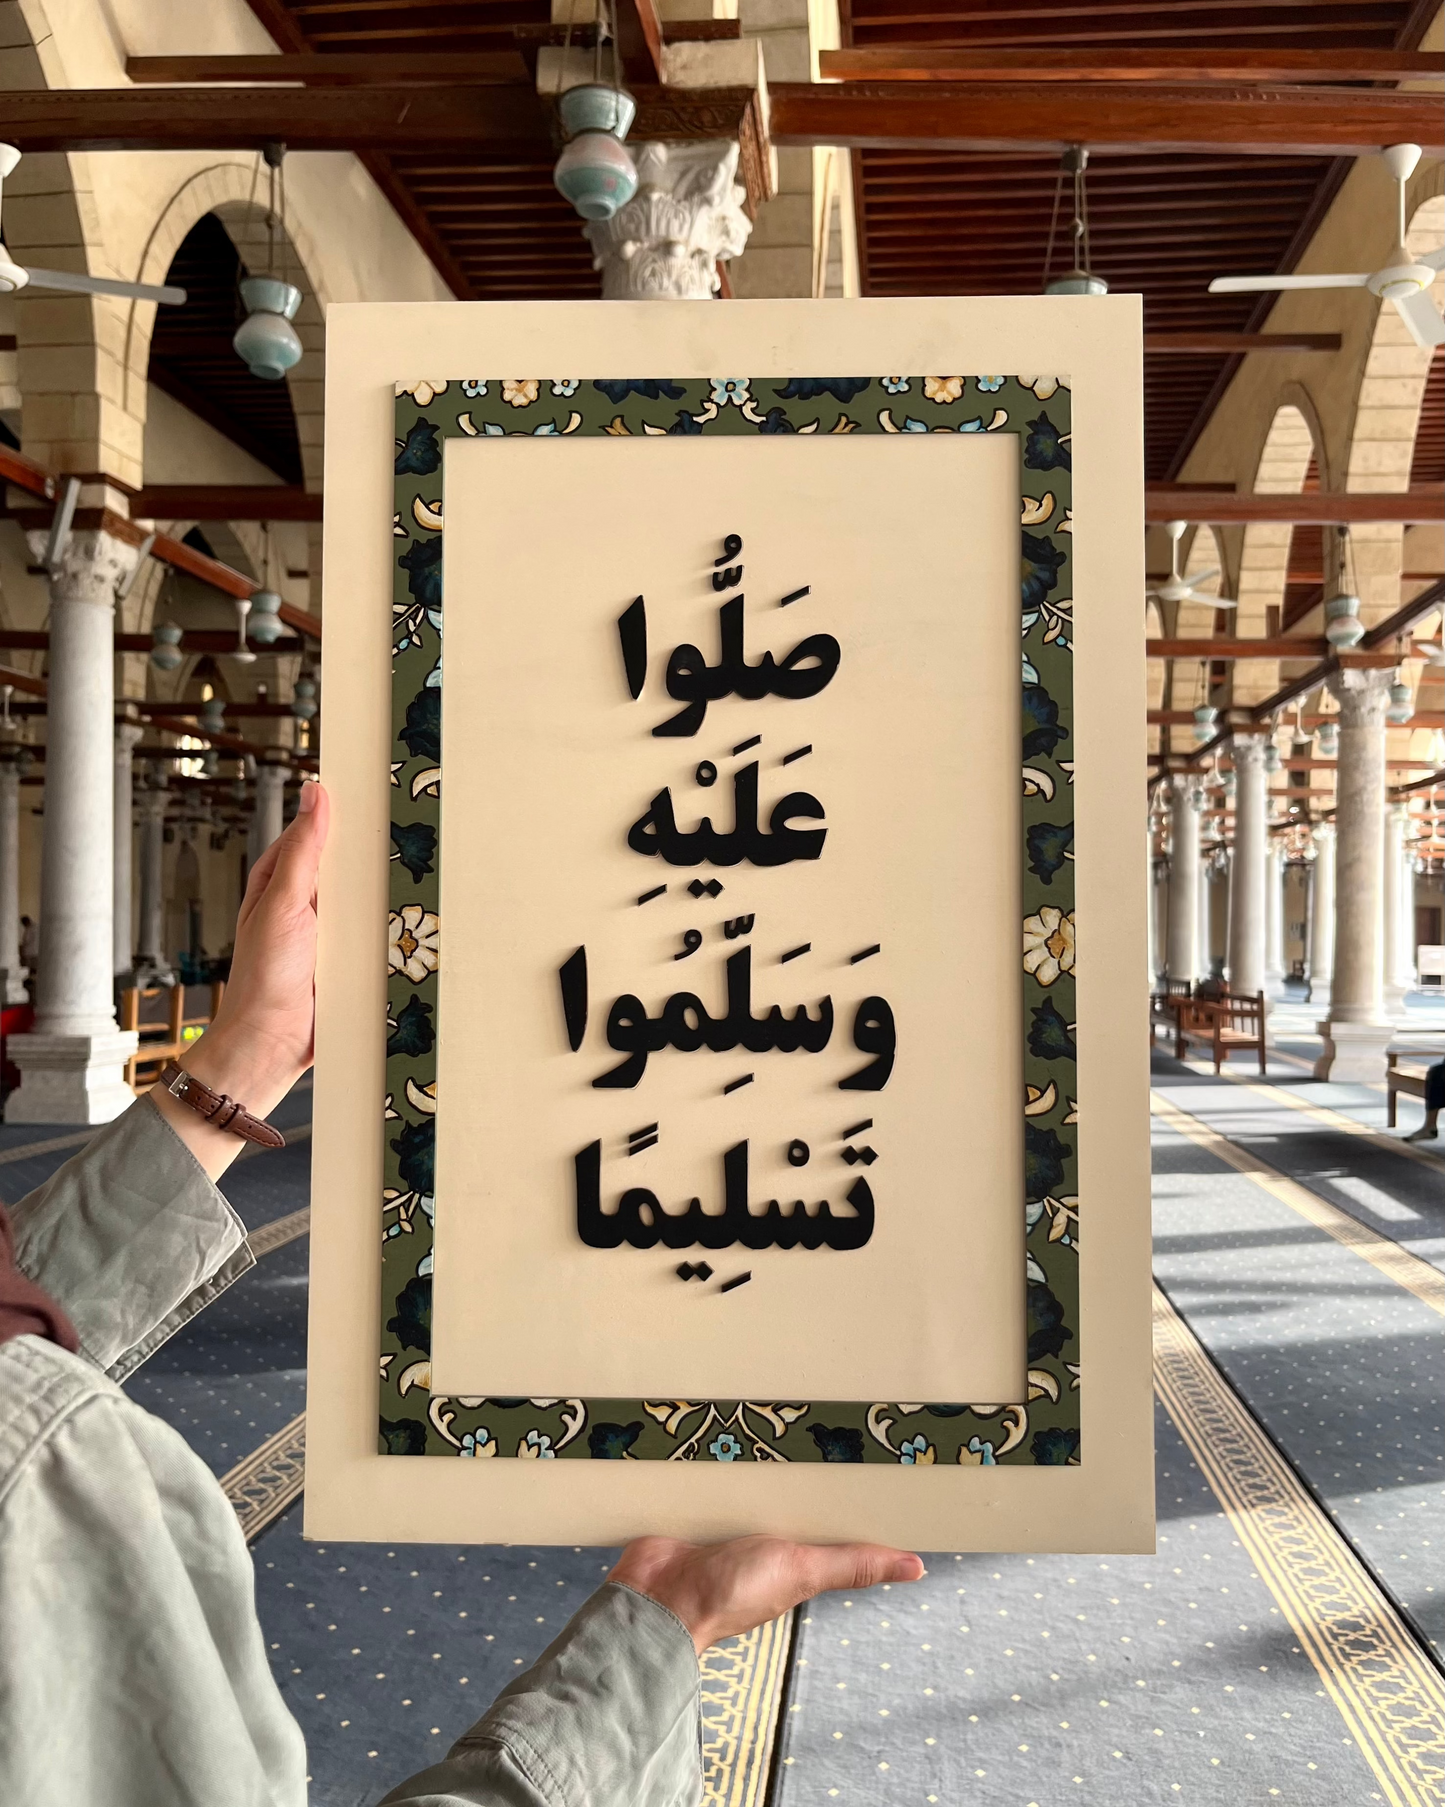 صَلُّوا
عَلَيْهِ
وَسَلِّمُوا
تَسْلِيمًا